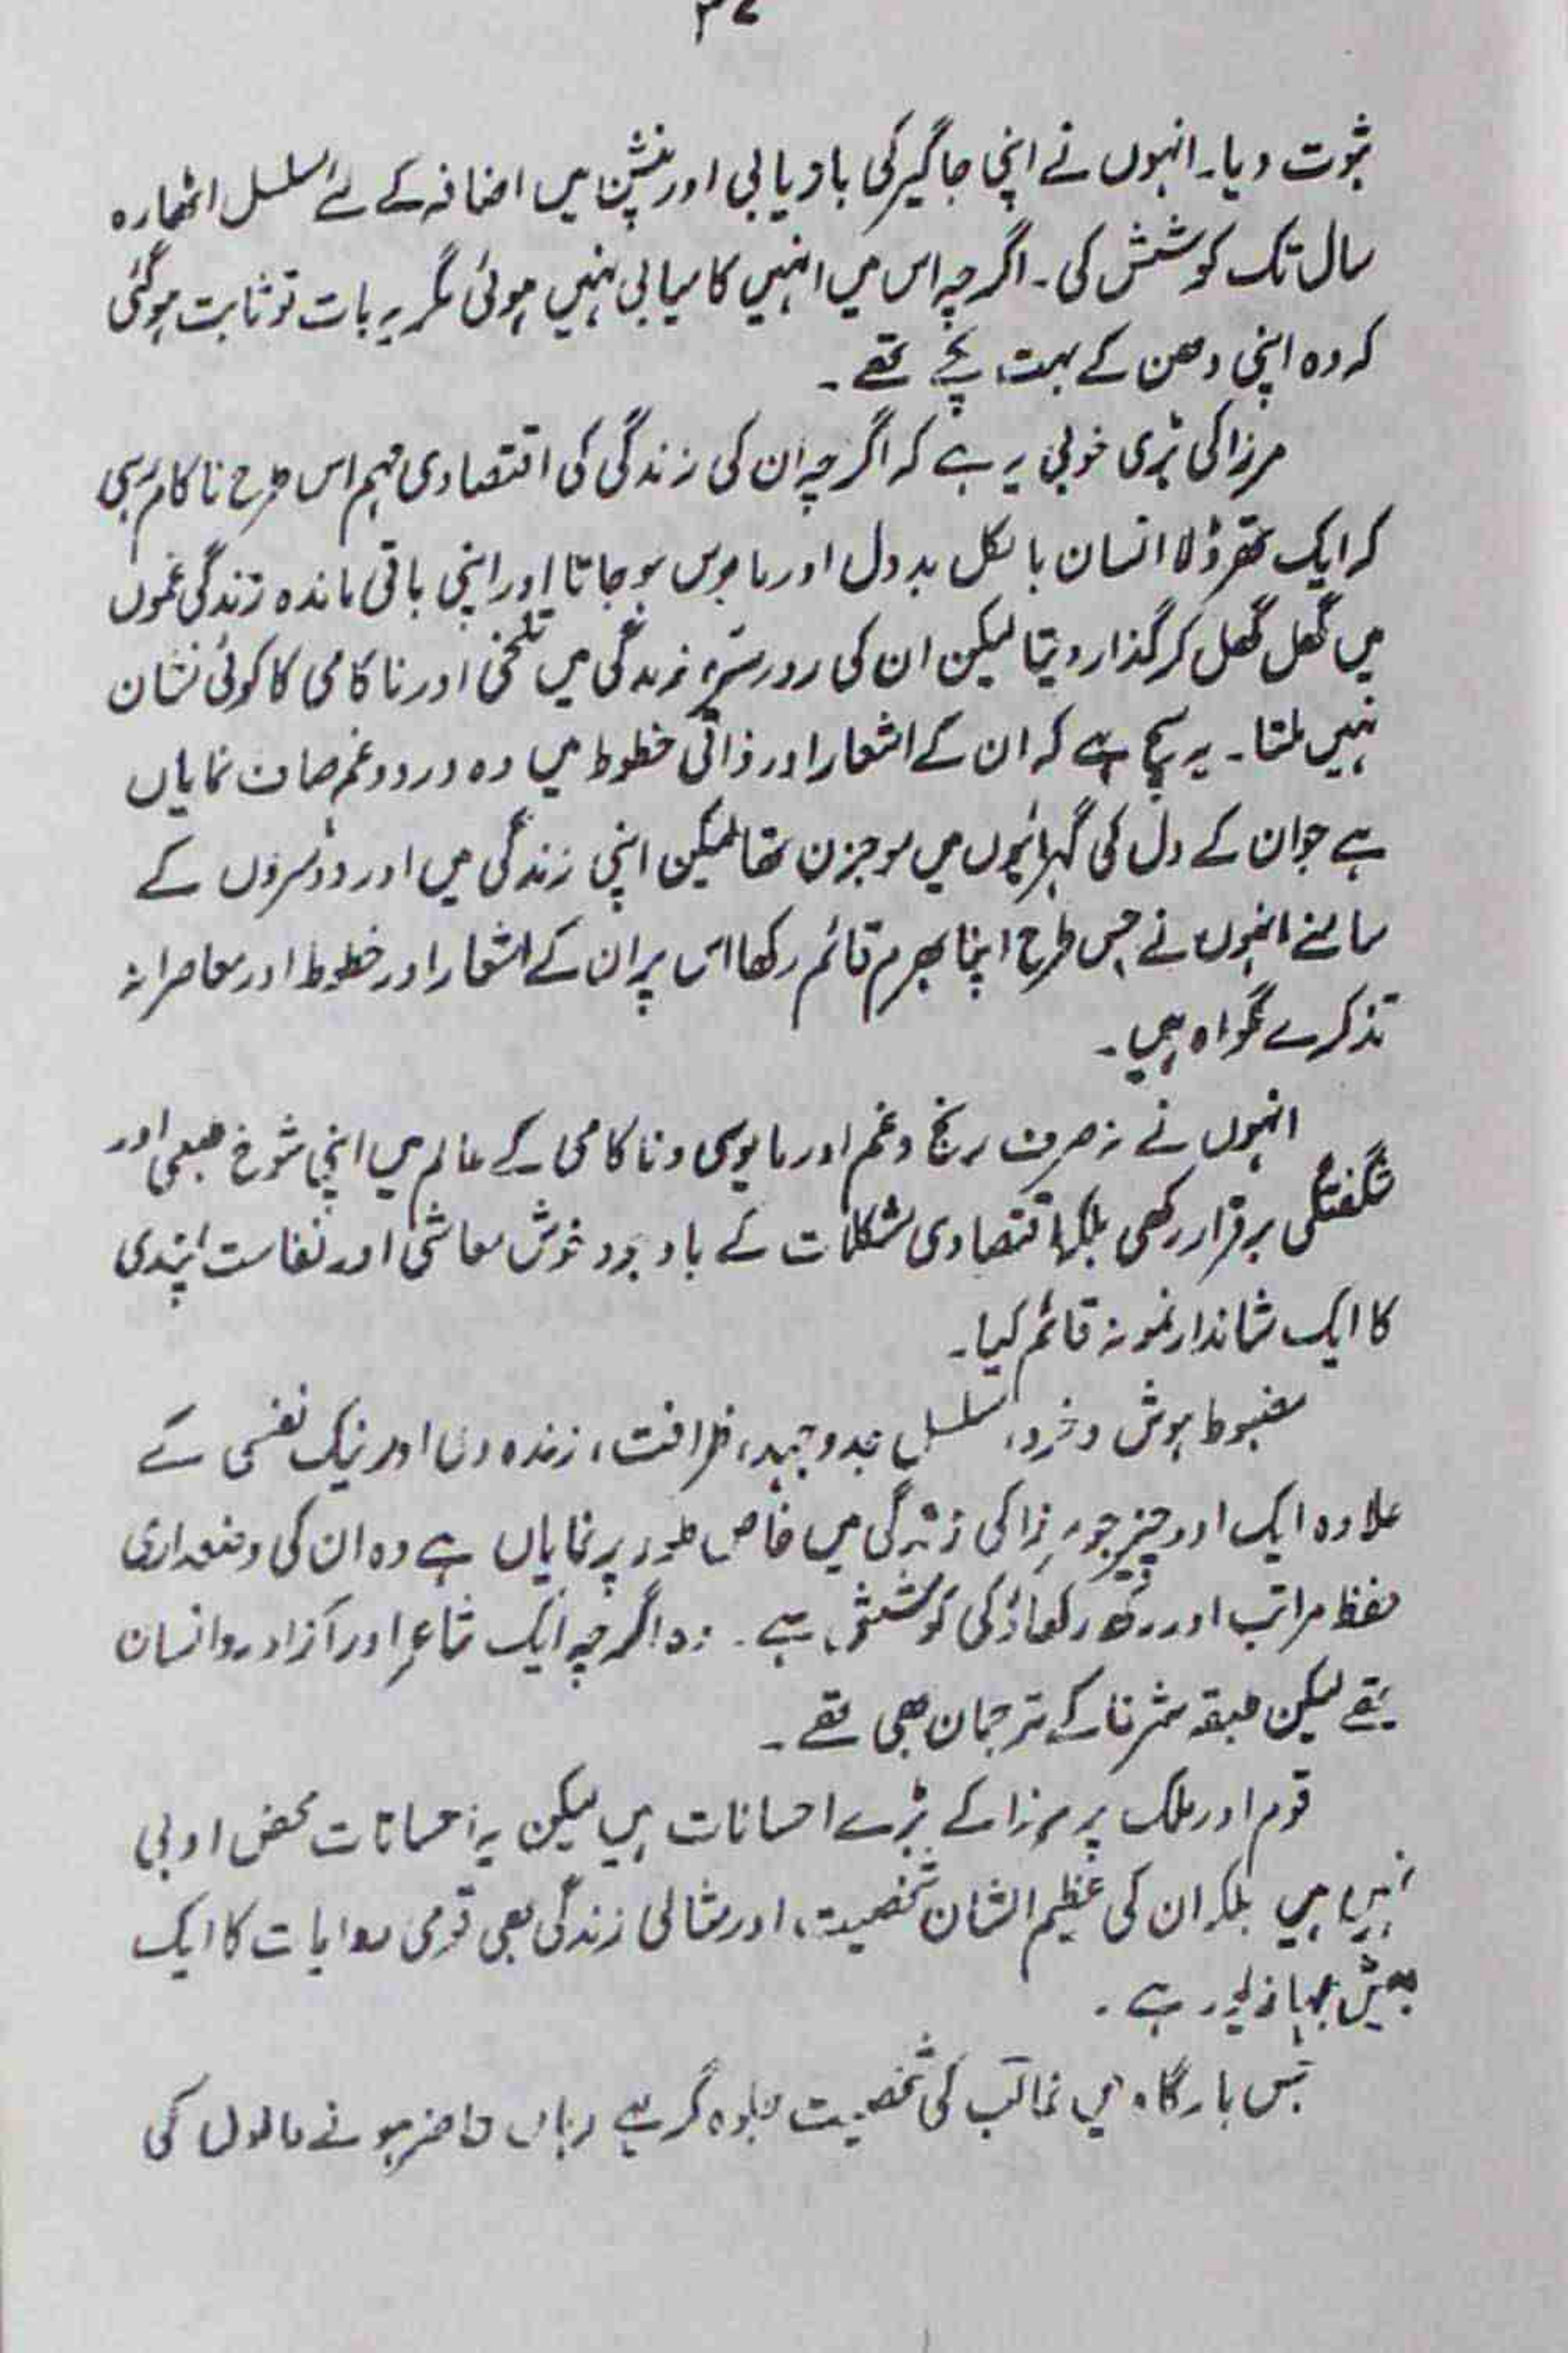 ثبوت دیا۔ انہوں نے اپنی جاگیر کی بازیابی اور پنشن میں اضافہ کے لئے مسلسل اٹھارہ
سال تک کوشش کی۔ اگرچہ اس میں انہیں کامیابی نہیں ہوئی مگر یہ بات تو ثابت ہوگئی
کہ وہ اپنی دھن کے بہت پکے تھے۔
مرزا کی بڑی خوبی یہ ہے کہ اگرچہ ان کی زندگی کی اقتصادی مہم اس طرح ناکام رہی
کہ ایک تھڑدلا انسان بالکل بددل اور مایوس ہوجاتا اور اپنی باقی ماندہ زندگی غموں
میں گھل گھل کر گذار دیتا لیکن ان کی روزمرہ زندگی میں تلخی اور ناکامی کا کوئی نشان
نہیں ملتا۔ یہ سچ ہے کہ ان کے اشعار اور ذاتی خطوط میں وہ درد و غم صاف نمایاں
ہے جو ان کے دل کی گہرائیوں میں موجزن تھا لیکن اپنی زندگی میں اور دوسروں کے
سامنے انہوں نے جس طرح اپنا بھرم قائم رکھا اس پر ان کے اشعار اور خطوط اور معاصرانہ
تذکرے گواہ ہیں۔
انہوں نے نہ صرف رنج و غم اور مایوسی و ناکامی کے عالم میں اپنی شوخ طبعی اور
شگفتگی برقرار رکھی بلکہ اقتصادی مشکلات کے باوجود خوش معاشی اور نفاست پسندی
کا ایک شاندار نمونہ قائم کیا۔
مضبوط ہوش و خرد، مسلسل جدوجہد، ظرافت، زندہ دلی اور نیک نفسی کے
علاوہ ایک اور چیز جو مرزا کی زندگی میں خاص طور پر نمایاں ہے وہ ان کی وضعداری
حفظ مراتب اور رکھ رکھاؤ کی کوشش ہے۔ وہ اگرچہ ایک شاعر اور آزاد رو انسان
تھے لیکن طبقہ شرفا کے ترجمان بھی تھے۔
قوم اور ملک پر مرزا کے بڑے احسانات ہیں لیکن یہ احسانات محض ادبی
نہیں ہیں بلکہ ان کی عظیم الشان شخصیت، اور مثالی زندگی بھی قومی روایات کا ایک
بیش بہا زیور ہے۔
جس بارگاہ میں غالب کی شخصیت جلوہ گر ہے وہاں حاضر ہونے والوں کی